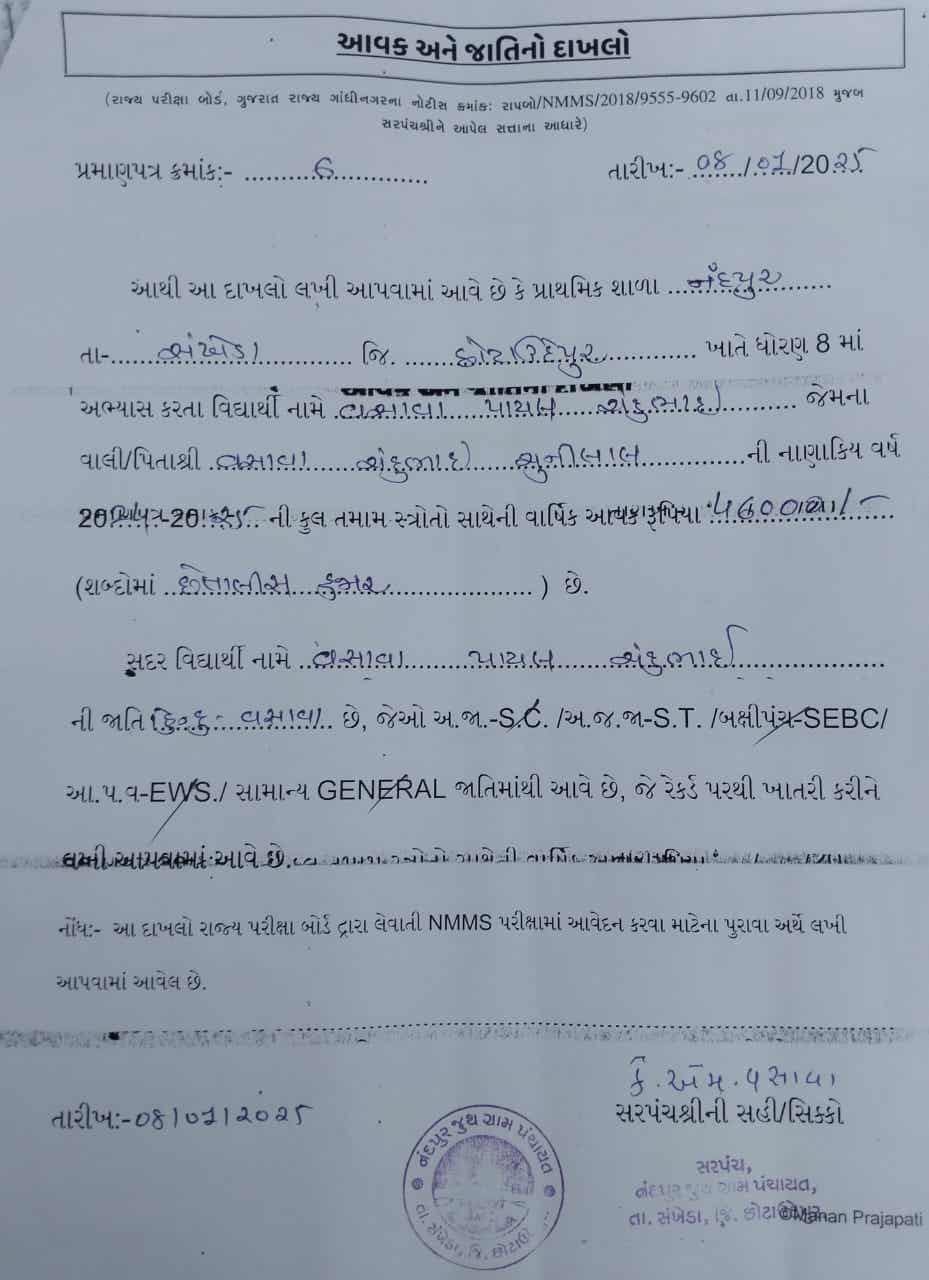 આવક અને જાતિનો દાખલો
(રાજ્ય પરીક્ષા બોર્ડ, ગુજરાત રાજ્ય ગાંધીનગરના નોટીસ ક્રમાંક: રાપબો/NMMS/2018/9555-9602 તા.11/09/2018 મુજબ
સરપંચશ્રીને આપેલ સત્તાના આધારે)
પ્રમાણપત્ર ક્રમાંક:- ..........6............. તારીખ:- 08/01/2025
આથી આ દાખલો લખી આપવામાં આવે છે કે પ્રાથમિક શાળા ..નંદપુર..........
તા-......સંખેડા............ જિ. ......છોટાઉદેપુર............. ખાતે ધોરણ 8 માં
અભ્યાસ કરતા વિદ્યાર્થી નામે વસાવા.....પાયલ.....ચંદુભાઈ.......... જેમના
વાલી/પિતાશ્રી .વસાવા.....ચંદુભાઈ.....ચુનીલાલ..............ની નાણાકિય વર્ષ
ની કુલ તમામ સ્ત્રોતો સાથેની વાર્ષિક આવક રૂપિયા
(શબ્દોમાં ..છેતાલીસ....હજાર...................) છે.
સદર વિદ્યાર્થી નામે ..વસાવા.........પાયલ........ચંદુભાઈ....................
ની જાતિ હિન્દુ-વસાવા.. છે, જેઓ અ.જા.-S.C. /અ.જ.જા-S.T. /બક્ષીપંચ-SEBC/
આ.પ.વ-EWS./ સામાન્ય GENERAL જાતિમાંથી આવે છે, જે રેકર્ડ પરથી ખાતરી કરીને
લખી આપવામાં આવે છે.
નોંધ:- આ દાખલો રાજ્ય પરીક્ષા બોર્ડ દ્વારા લેવાતી NMMS પરીક્ષામાં આવેદન કરવા માટેના પુરાવા અર્થે લખી
આપવામાં આવેલ છે.
કે.એમ.વસાવા
તારીખ:-08/01/2025 સરપંચશ્રીની સહી/સિક્કો
નંદપુર જુથ ગ્રામ પંચાયત
તા. સંખેડા, જિ.
સરપંચ,
નંદપુર જુથ ગ્રામ પંચાયત,
તા. સંખેડા, જિ. છોટાઉદેપુર
©Manan Prajapati